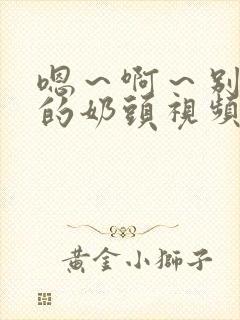 嗯～啊～别
的奶頭視頻
黃金小獅子